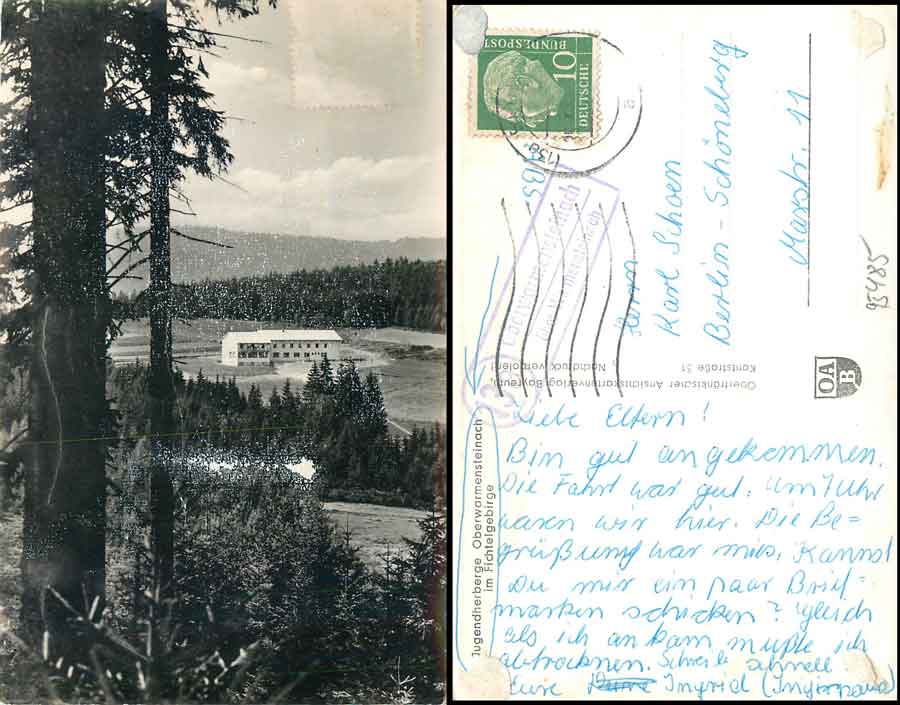 10
DEUTSCHE
BUNDESPOST
Oberwarmensteinach
Herrn
Karl Schoen
Berlin-Schöneberg
Marstr. 11
95485
Jugendherberge Oberwarmensteinach
im Fichtelgebirge
Oberfränkischer Ansichtskartenverlag Bayreuth,
Kantstraße 31
Nachdruck verboten!
OAB
Liebe Eltern!
Bin gut angekommen.
Die Fahrt war gut. Um 7 Uhr
waren wir hier. Die Be=
grüßung war mies. Kannst
Du mir ein paar Brief-
marken schicken? Gleich
als ich ankam mußte ich
abtrocknen. Schreib schnell
Eure Ingrid